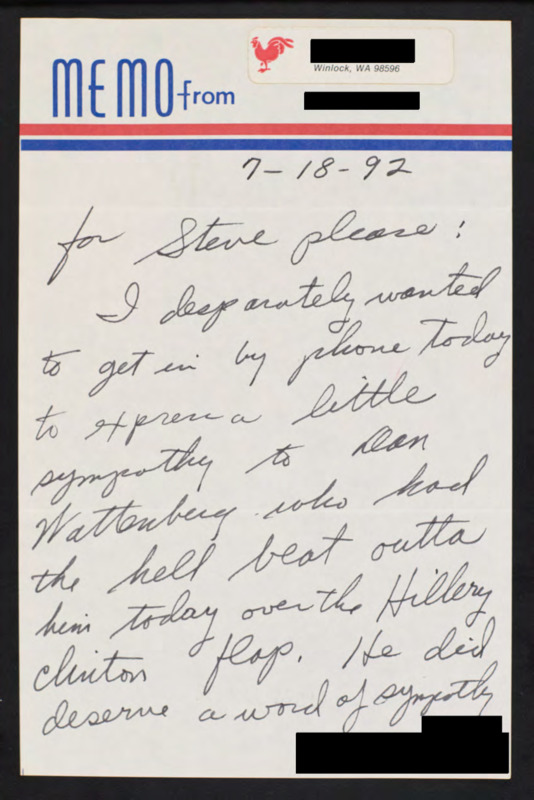 MEMO from
Winlock, WA 98596
7-18-92
for Steve please:
I desparately wanted
to get in by phone today
to express a little
sympathy to Dan
Wattenberg who had
the hell beat outta
him today over the Hillery
Clinton flap. He did
deserve a word of sympathy